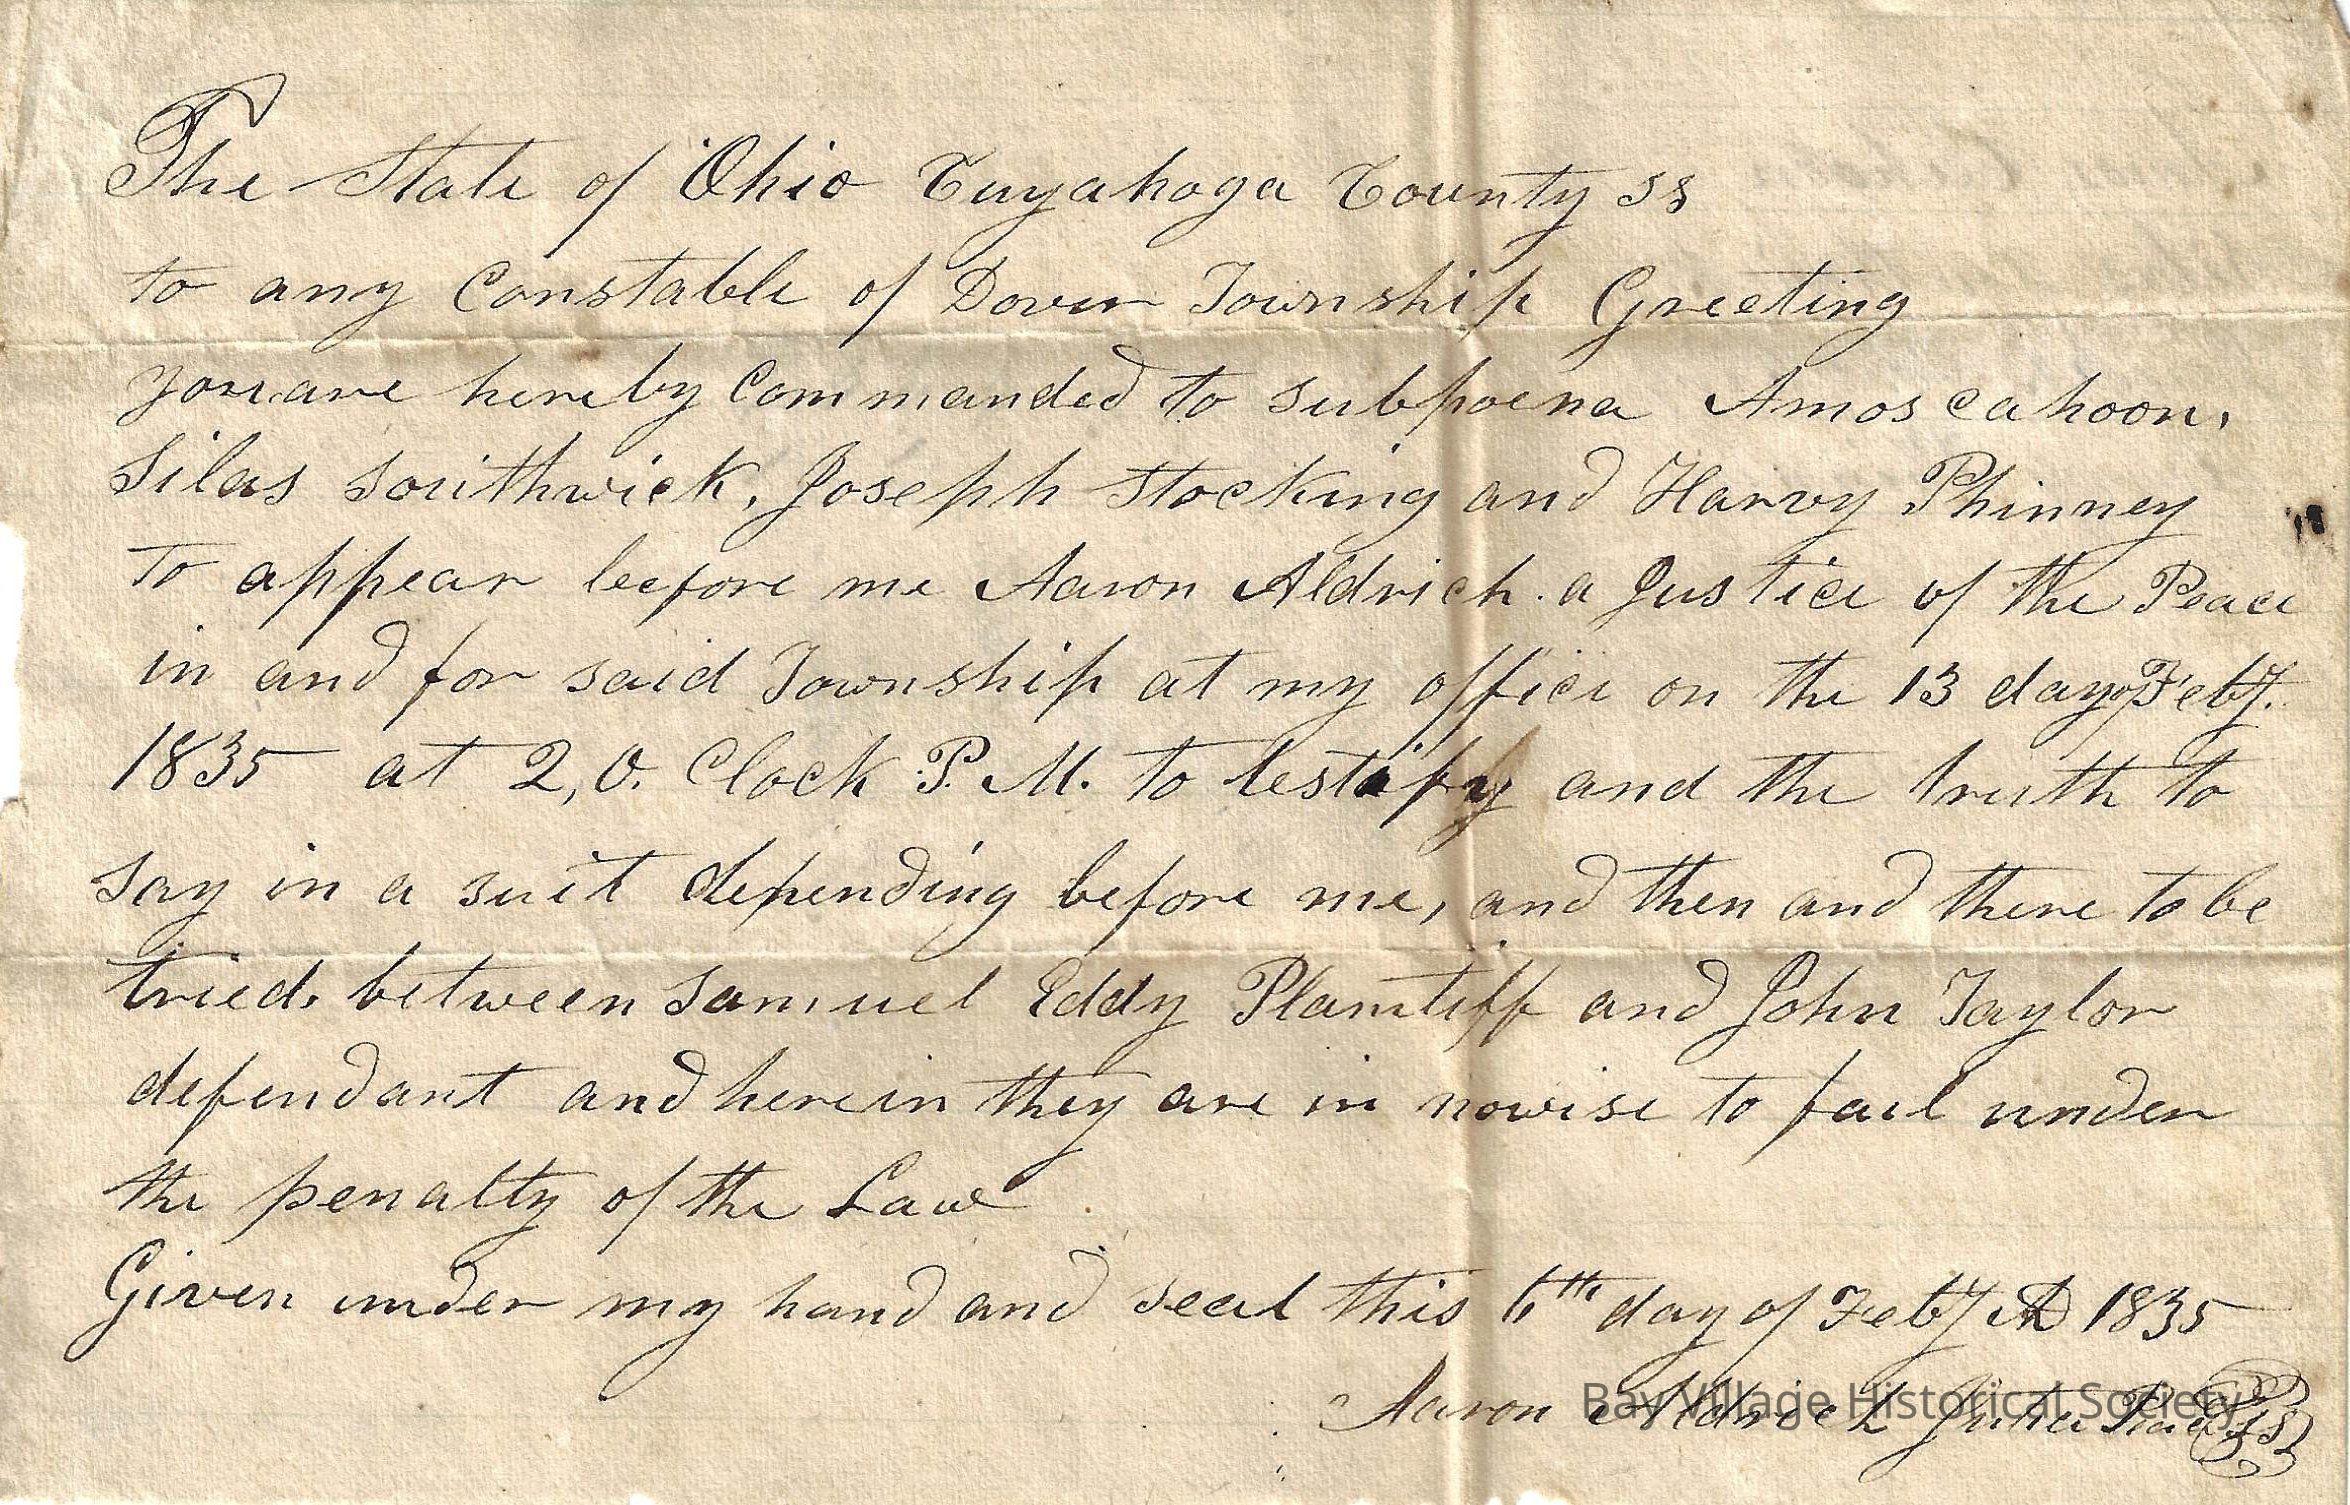 The State of Ohio Cuyahoga County ss
to any Constable of Dover Township Greeting
you are hereby Commanded to subpoena Amos cahoon,
Silas Southwick, Joseph Stocking and Harvy Phinney
To appear before me Aaron Aldrich a Justice of the Peace
in and for said Township at my office on the 13 day of Feby.
1835 at 2, O. Clock P. M. to testify and the truth to
say in a suit depending before me, and then and there to be
tried, between Samuel Eddy Plaintiff and John Taylor
defendant and herein they are in nowise to fail under
the penalty of the Law
Given under my hand and seal this 6th day of Feby AD 1835
Aaron Aldrich Justice Peace LS
Bay Village Historical Society